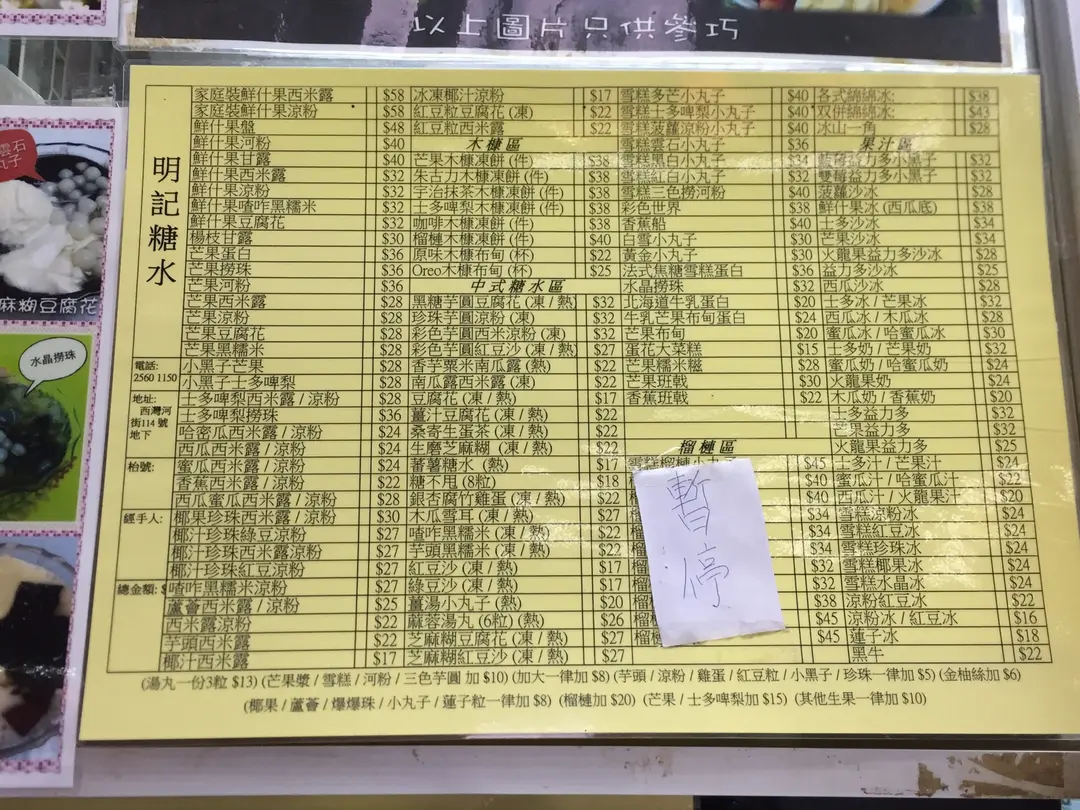 以上圖片只供參巧
雲石
丸子
麻糊豆腐花
水晶撈珠
明記糖水
電話:
2560 1150
地址:
西灣河
街114 號
地下
枱號:
經手人:
總金額: $
家庭裝鮮什果西米露 $58
家庭裝鮮什果涼粉 $58
鮮什果盤 $48
鮮什果河粉 $40
鮮什果甘露 $40
鮮什果西米露 $32
鮮什果涼粉 $32
鮮什果喳咋黑糯米 $32
鮮什果豆腐花 $32
楊枝甘露 $30
芒果蛋白 $36
芒果撈珠 $36
芒果河粉 $36
芒果西米露 $28
芒果涼粉 $28
芒果豆腐花 $28
芒果黑糯米 $28
小黑子芒果 $28
小黑子士多啤梨 $28
士多啤梨西米露 / 涼粉 $28
士多啤梨撈珠 $36
哈密瓜西米露 / 涼粉 $24
西瓜西米露 / 涼粉 $24
蜜瓜西米露 / 涼粉 $24
香蕉西米露 / 涼粉 $22
西瓜蜜瓜西米露 / 涼粉 $28
椰果珍珠西米露 / 涼粉 $30
椰汁珍珠綠豆涼粉 $27
椰汁珍珠西米露 / 涼粉 $27
椰汁珍珠紅豆涼粉 $27
喳咋黑糯米涼粉 $27
蘆薈西米露 / 涼粉 $25
西米露涼粉 $22
芋頭西米露 $22
椰汁西米露 $17
冰凍椰汁涼粉 $17
紅豆粒豆腐花 (凍) $22
紅豆粒西米露 $22
木糠區
芒果木糠凍餅 (件) $38
朱古力木糠凍餅 (件) $38
宇治抹茶木糠凍餅 (件) $38
士多啤梨木糠凍餅 (件) $38
咖啡木糠凍餅 (件) $38
榴槤木糠凍餅 (件) $40
原味木糠布甸 (杯) $22
Oreo木糠布甸 (杯) $25
中式糖水區
黑糖芋圓豆腐花 (凍 / 熱) $32
珍珠芋圓涼粉 (凍) $27
彩色芋圓西米涼粉 (凍) $32
彩色芋圓紅豆沙 (凍 / 熱) $27
香芋粟米南瓜露 (熱) $27
南瓜露西米露 (凍) $22
豆腐花 (凍 / 熱) $17
薑汁豆腐花 (凍 / 熱) $22
桑寄生蛋茶 (凍 / 熱) $22
生磨芝麻糊 (凍 / 熱) $22
蕃薯糖水 (熱) $17
糖不甩 (8粒) $18
銀杏腐竹雞蛋 (凍 / 熱) $22
木瓜雪耳 (凍 / 熱) $27
喳咋黑糯米 (凍 / 熱) $22
芋頭黑糯米 (凍 / 熱) $22
紅豆沙 (凍 / 熱) $17
綠豆沙 (凍 / 熱) $17
薑湯小丸子 (熱) $20
麻蓉湯丸 (6粒) (熱) $26
芝麻糊豆腐花 (凍 / 熱) $27
芝麻糊紅豆沙 (凍 / 熱) $27
雪糕多芒小丸子 $40
雪糕士多啤梨小丸子 $40
雪糕菠蘿涼粉小丸子 $40
雪糕雲石小丸子 $36
雪糕黑白小丸子 $34
雪糕紅白小丸子 $32
雪糕三色撈河粉 $40
彩色世界 $38
香蕉船 $40
白雪小丸子 $30
黃金小丸子 $30
法式焦糖雪糕蛋白 $36
水晶撈珠 $32
北海道牛乳蛋白 $20
牛乳芒果布甸蛋白 $24
芒果布甸 $20
蛋花大菜糕 $15
芒果糯米糍 $28
芒果班戟 $30
香蕉班戟 $22
榴槤區
雪糕榴槤小丸子 $45
榴 $40
$40
榴 $34
$34
$34
$32
榴 $32
榴 $38
榴 $45
榴 $45
暫停
各式綿綿冰: $38
双併綿綿冰: $43
冰山一角 $28
果汁區
藍莓益力多小黑子 $32
雙莓益力多小黑子 $32
菠蘿沙冰 $28
鮮什果冰 (西瓜底) $38
士多沙冰 $34
芒果沙冰 $34
火龍果益力多沙冰 $28
益力多沙冰 $25
西瓜沙冰 $28
士多冰 / 芒果冰 $32
西瓜冰 / 木瓜冰 $28
蜜瓜冰 / 哈蜜瓜冰 $30
士多奶 / 芒果奶 $32
蜜瓜奶 / 哈蜜瓜奶 $24
火龍果奶 $24
木瓜奶 / 香蕉奶 $20
士多益力多 $32
芒果益力多 $32
火龍果益力多 $25
士多汁 / 芒果汁 $24
蜜瓜汁 / 哈蜜瓜汁 $22
西瓜汁 / 火龍果汁 $20
雪糕涼粉冰 $24
雪糕紅豆冰 $24
雪糕珍珠冰 $24
雪糕椰果冰 $24
雪糕水晶冰 $24
涼粉紅豆冰 $22
涼粉冰 / 紅豆冰 $16
蓮子冰 $18
黑牛 $22
(湯丸一份3粒 $13) (芒果漿 / 雪糕 / 河粉 / 三色芋圓 加 $10) (加大一律加 $8) (芋頭 / 涼粉 / 雞蛋 / 紅豆粒 / 小黑子 / 珍珠一律加 $5) (金柚絲加 $6)
(椰果 / 蘆薈 / 爆爆珠 / 小丸子 / 蓮子粒一律加 $8) (榴槤加 $20) (芒果 / 士多啤梨加 $15) (其他生果一律加 $10)